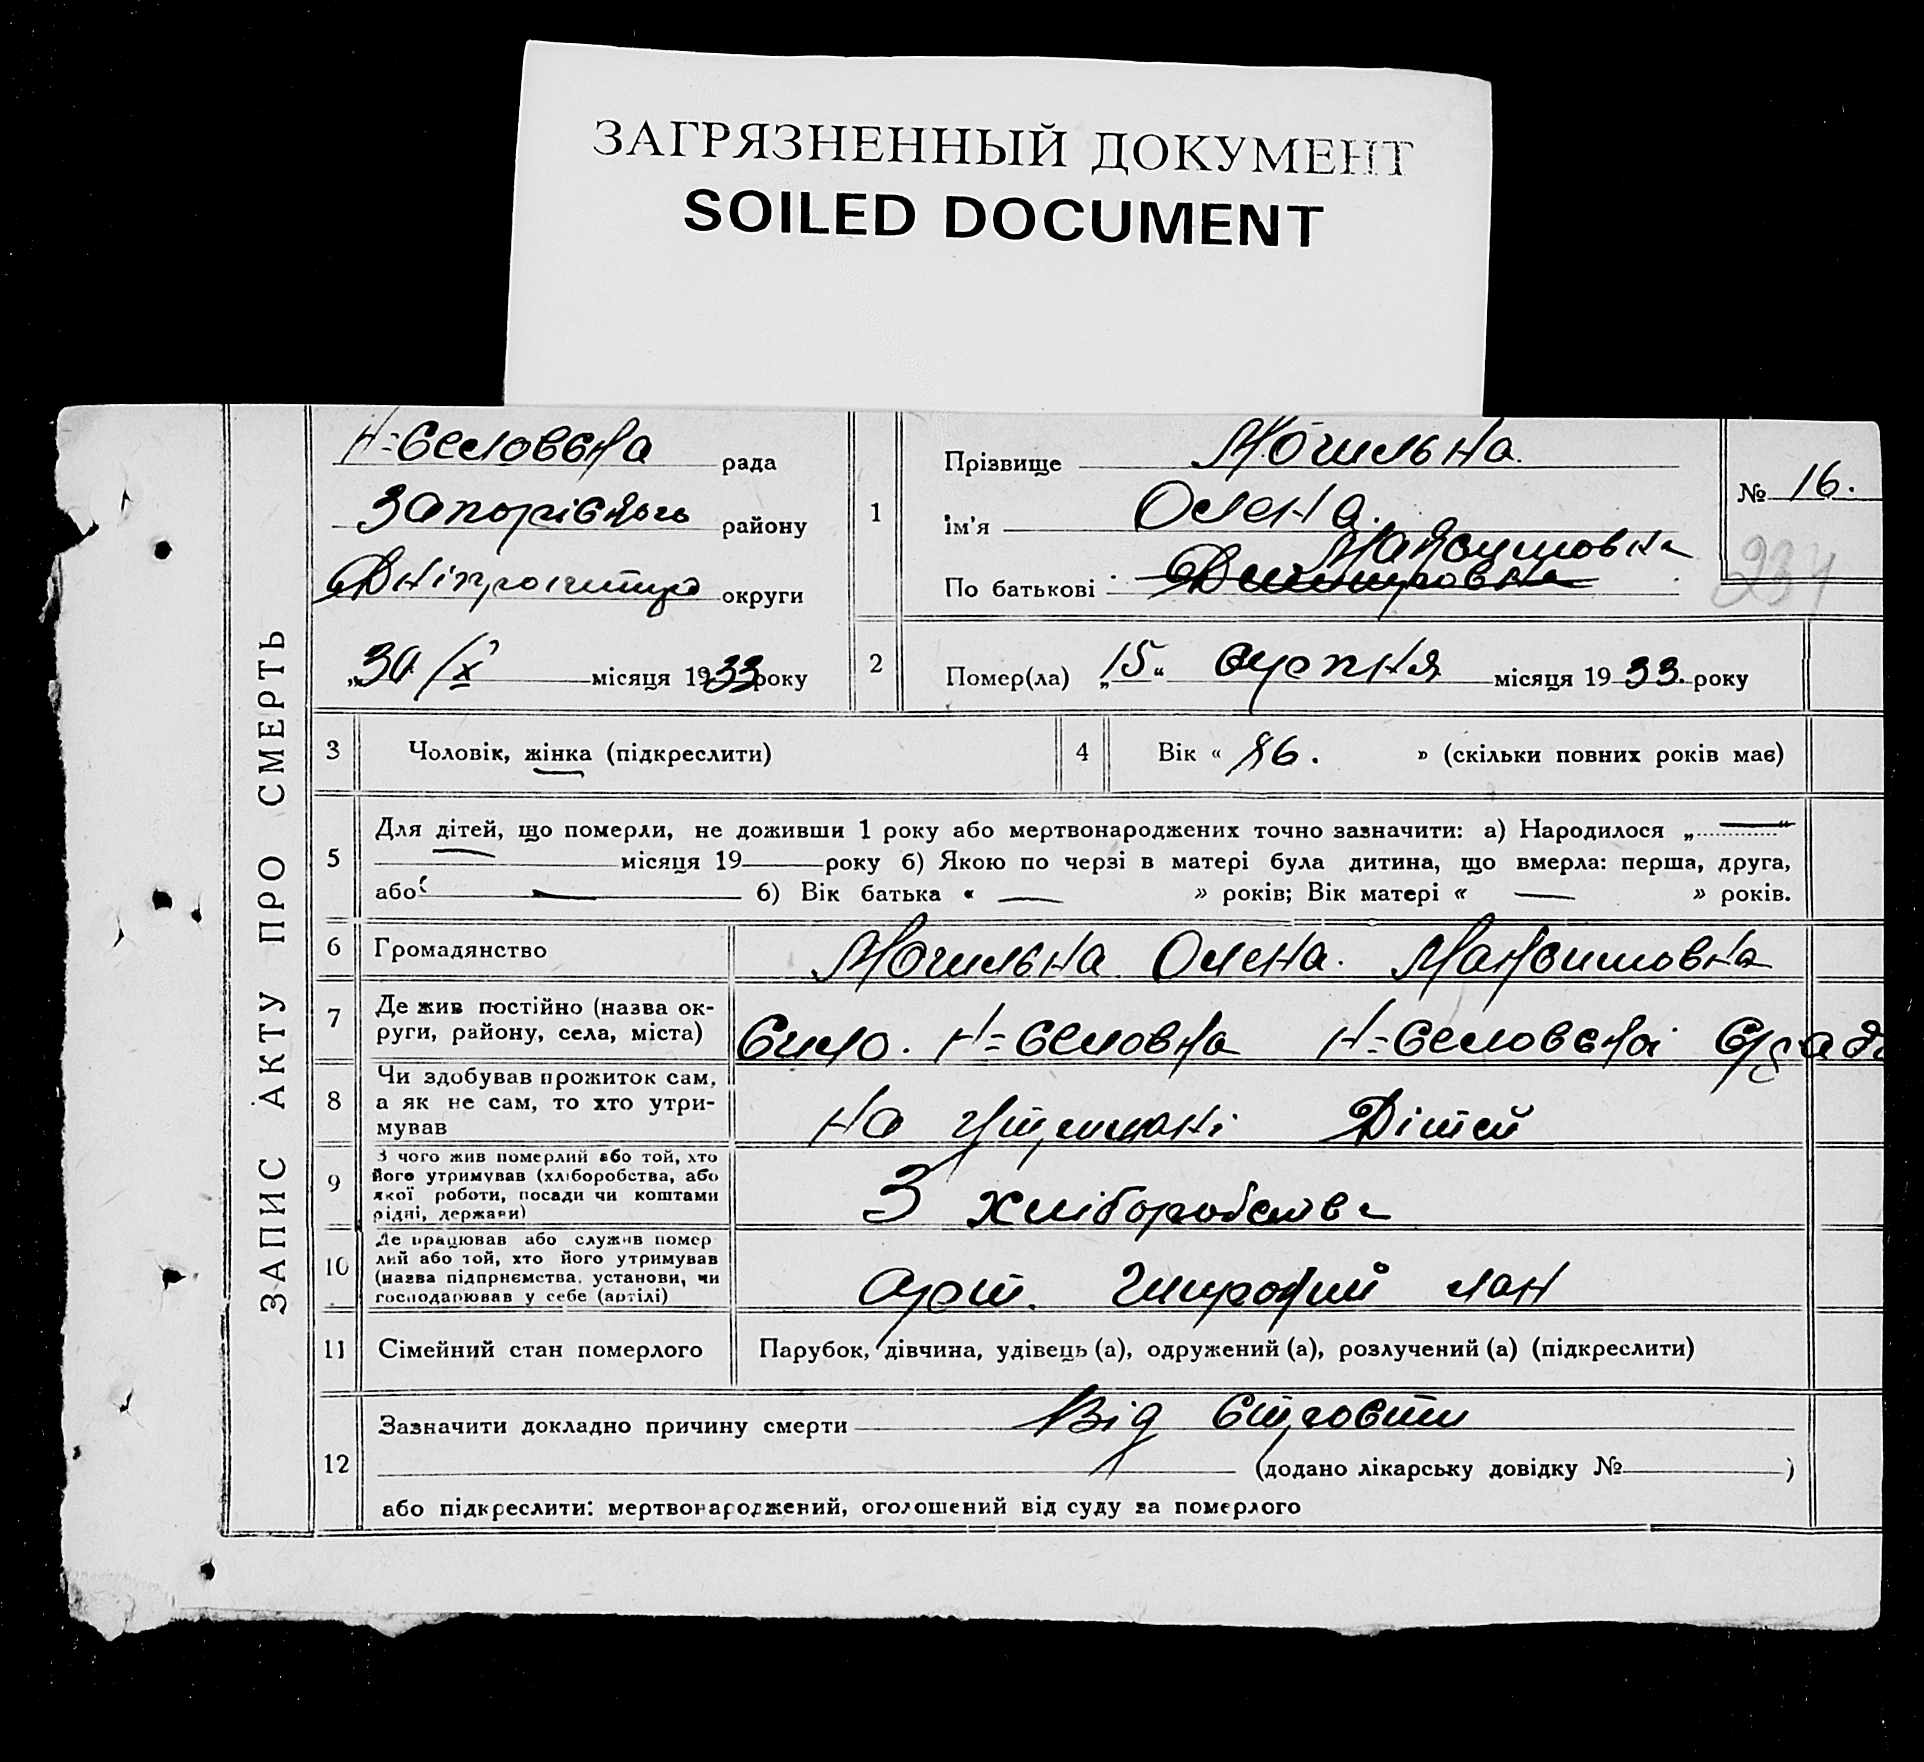 ЗАГРЯЗНЕННЫЙ ДОКУМЕНТ
SOILED DOCUMENT
ЗАПИС АКТУ ПРО СМЕРТЬ
рада
району
округи
„30/X місяця 1933 року
1
Прізвище Могильна.
ім'я Олена.
Максимовна
По батькові
№ 16.
234
2
Помер(ла) „15“ серпня місяця 1933. року
3
Чоловік, жінка (підкреслити)
4
Вік « 86. » (скільки повних років має)
5
Для дітей, що померли, не доживши 1 року або мертвонароджених точно зазначити: а) Народилося „ — “
місяця 19 року б) Якою по черзі в матері була дитина, що вмерла: перша, друга,
або — б) Вік батька « — » років; Вік матері « — » років.
6
Громадянство
Могильна Олена. Максимовна
7
Де жив постійно (назва ок-
руги, району, села, міста)
Село.
8
Чи здобував прожиток сам,
а як не сам, то хто утри-
мував
на утримані Дітей
9
З чого жив померлий або той, хто
його утримував (хліборобства, або
якої роботи, посади чи коштами
рідні, держави)
З хліборобства
10
Де працював або служив помер
лий або той, хто його утримував
(назва підпрнємства, установи, чи
господарював у себе (артілі)
арт. Широкий лан
11
Сімейний стан померлого
Парубок, дівчина, удівець (а), одружений (а), розлучений (а) (підкреслити)
12
Зазначити докладно причину смерти Від старости
(додано лікарську довідку № )
або підкреслити: мертвонароджений, оголошений від суду за померлого